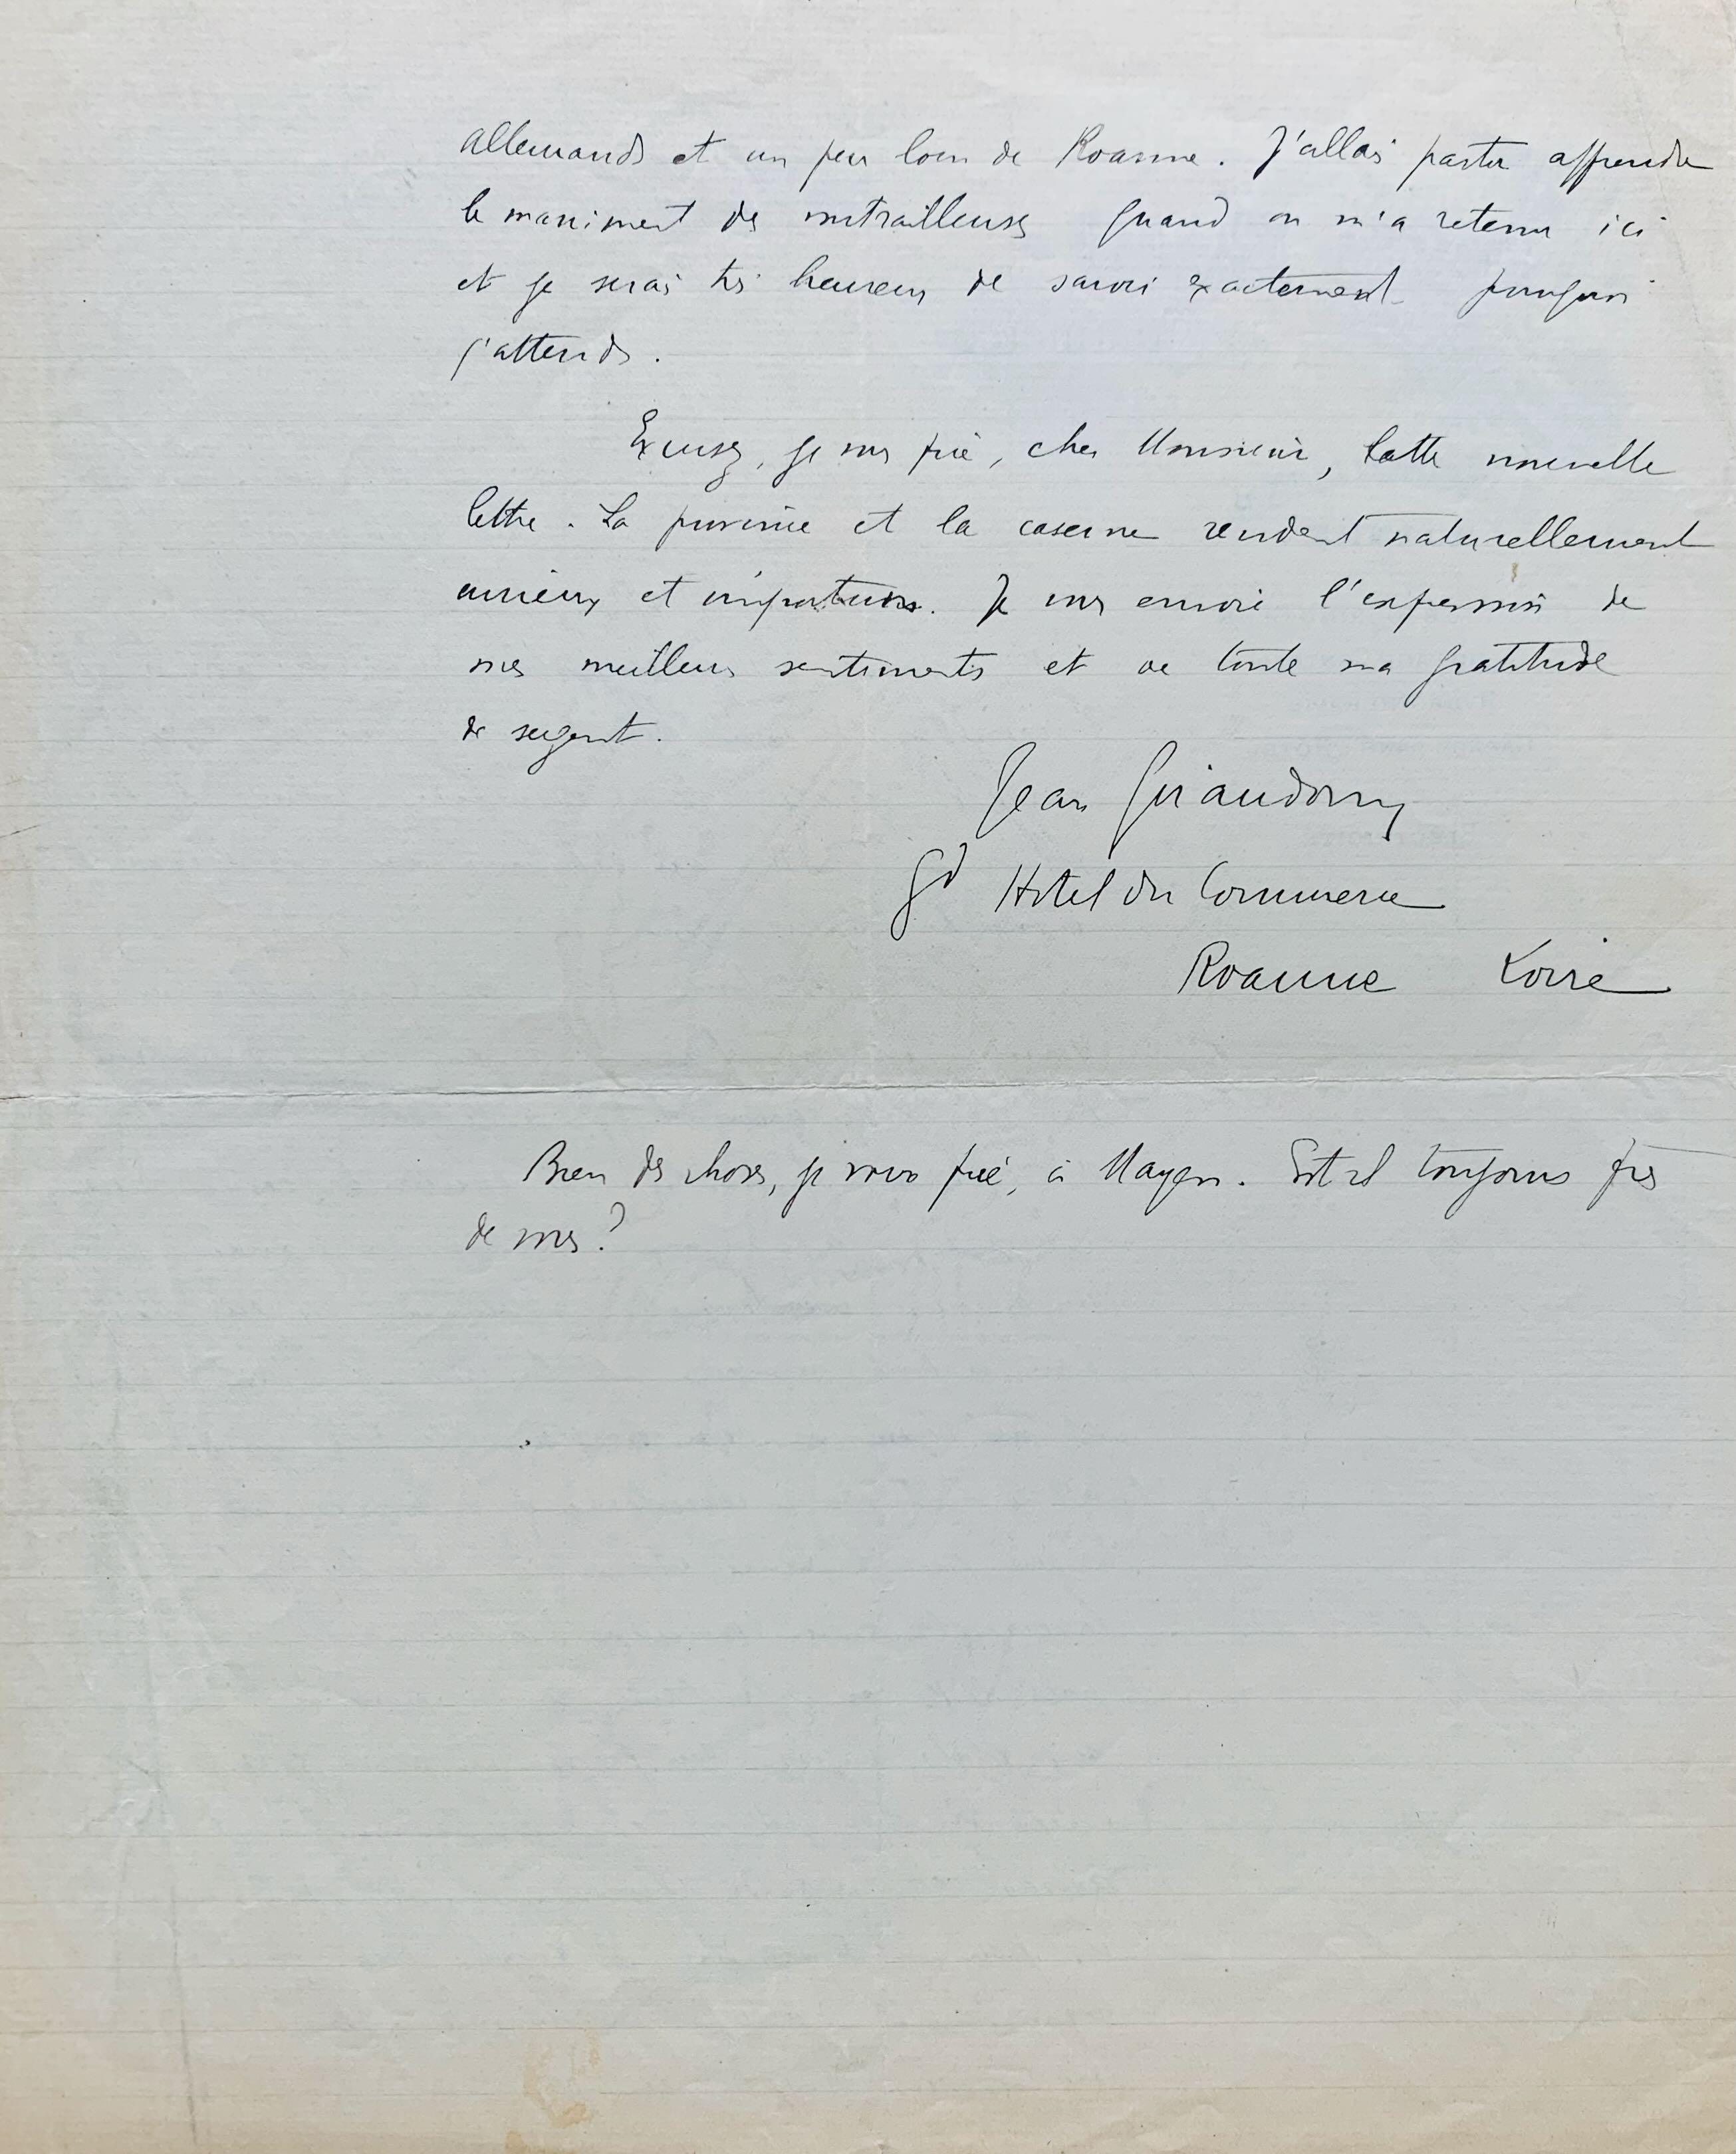 allemands et un peu loin de Roanne. J'allais partir apprendre
le maniment des mitrailleuses quand on m'a retenu ici
et je serais très heureux de savoir exactement pourquoi
j'attends.
Excusez, je vous prie, cher Monsieur, cette nouvelle
lettre. La province et la caserne rendent naturellement
curieux et importuns. Je vous envoie l'expression de
mes meilleurs sentiments et de toute ma gratitude
de sergent.
Jean Giraudoux
Gd Hotel du Commerce
Roanne Loire
Bien des choses, je vous prie, à Mayen. Est il toujours près
de vous?